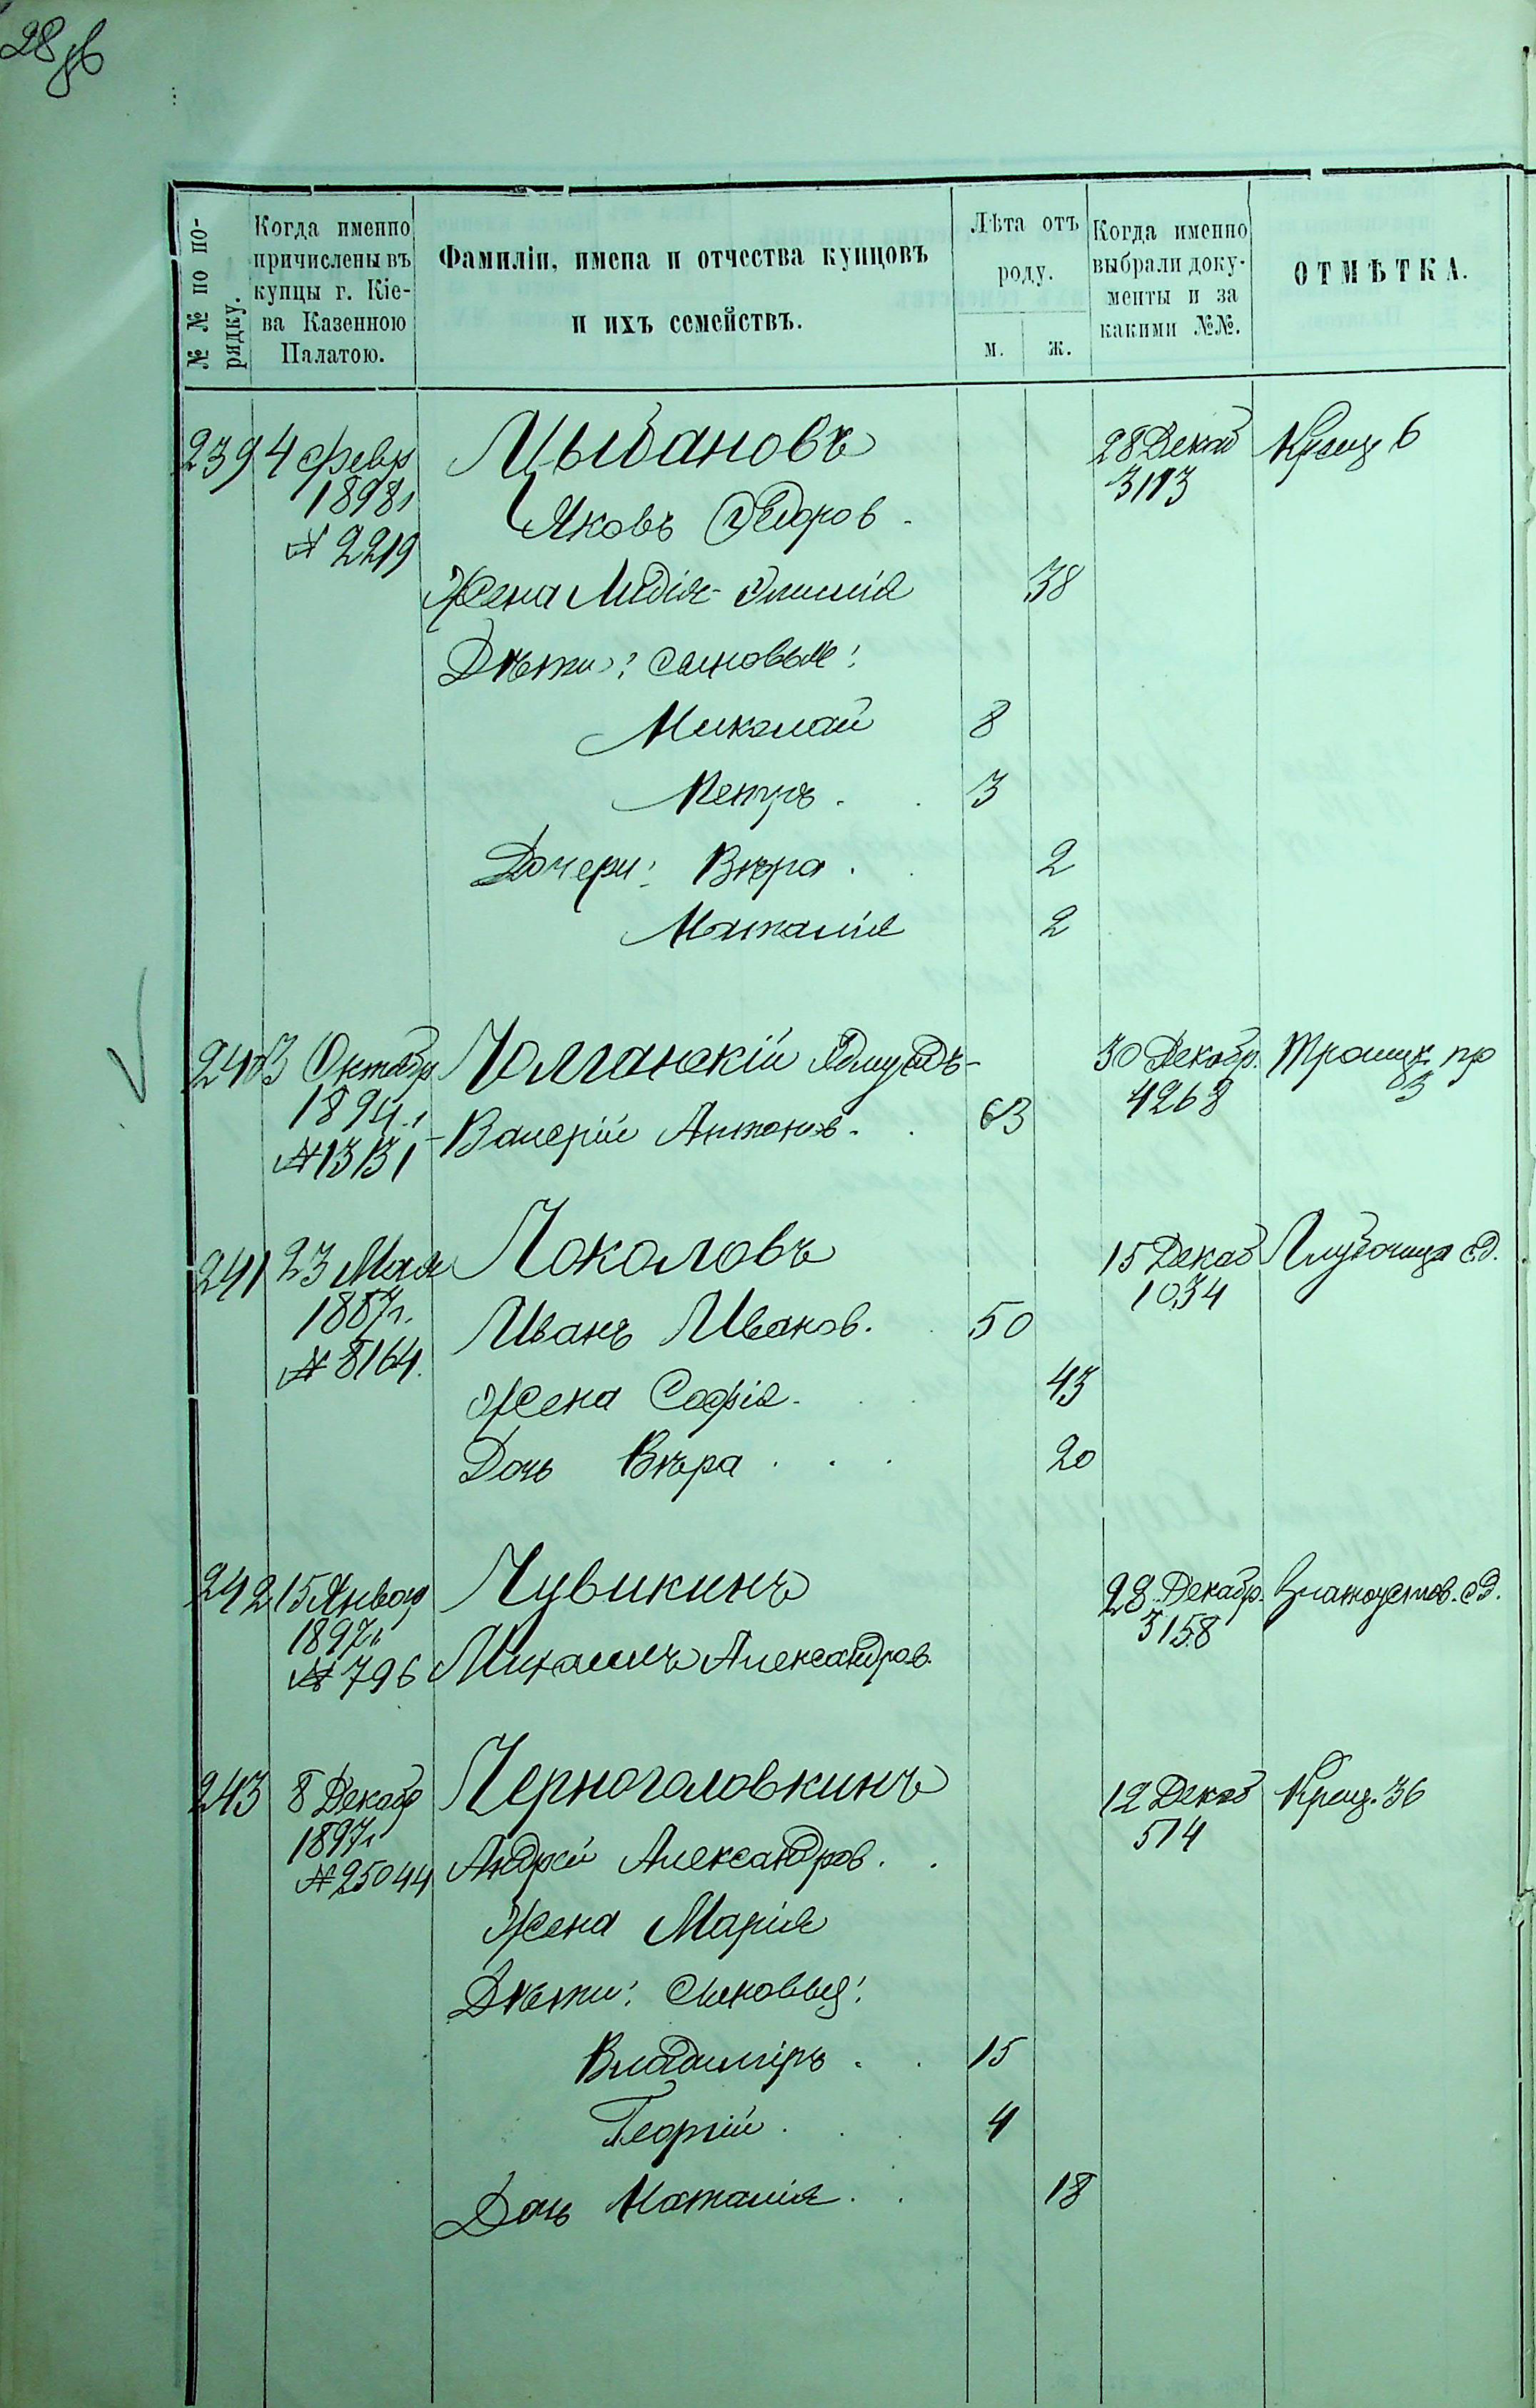 28 об
№ № по по-
рядку.
Когда именно
причислены въ
купцы г. Кіе-
ва Казенною
Палатою.
Фамиліи, имена и отчества купцовъ
и ихъ семействъ.
Лѣта отъ
роду.
м. ж.
Когда именно
выбрали доку-
менты и за
какими №№.
ОТМѢТКА.
239 4 февр Цыбановъ 28 Декаб Крещ 6
1898 г 3113
Яковъ Федоров
№ 2219
Жена Лидія- 38
Дѣти: сыновья:
Николай 8
Петръ . . 3
Дочери: Вѣра . . 2
Наталія 2
240 3 Октябр Чолганскій Эдмундъ- 30 Декабр. Троицк пр
1894 г 4268 83
Валерій Антонов. . 63
№ 13131
241 23 Мая Чоколовъ 15 Декаб Глубочица сд.
1887 г. 1034
Иванъ Иванов. . 50
№ 8164.
Жена Софія. . . 43
Дочь Вѣра . . . 20
242 15 Январ Чувикинъ 28 Декабр. Златоустов. сд.
1897 г 3158
№ 796 Михаилъ Александров.
243 8 Декабр Черноголовкинъ 12 Декаб Крещ. 36
1897 г 514
№ 25044 Андрей Александров. .
Жена Марія
Дѣти: Сыновья:
Владиміръ . . 15
Георгій . . . 4
Дочь Наталія . . 18